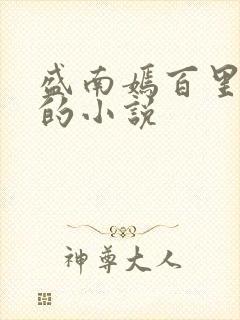 盛南嫣百里
的小说
神尊大人